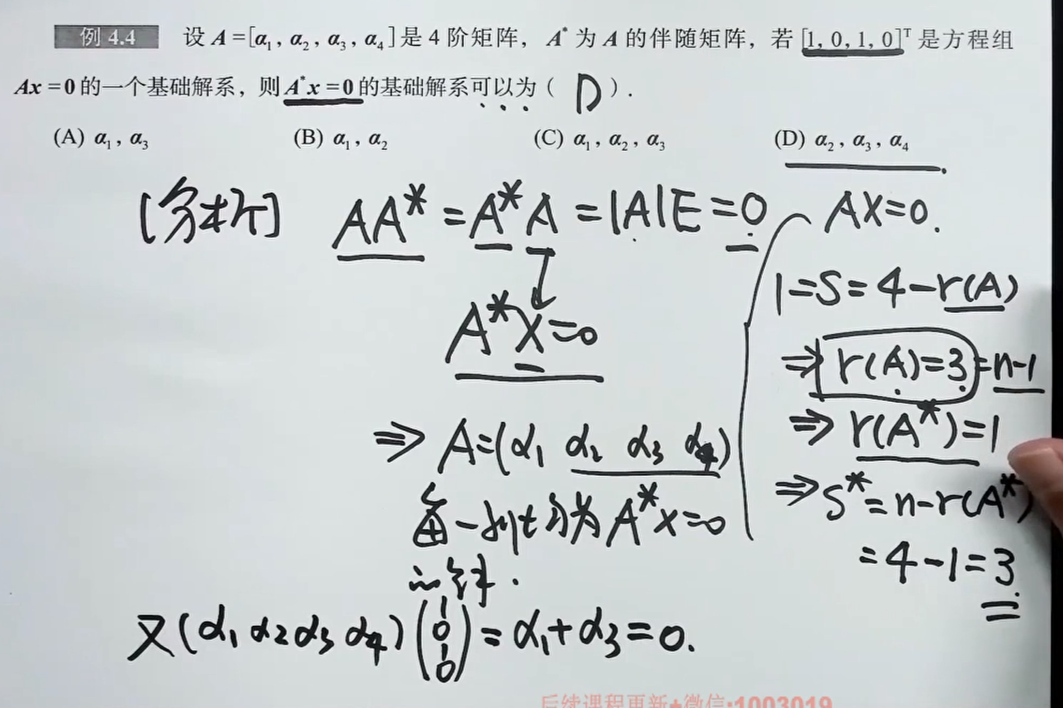 例 4.4 设 A=[α₁, α₂, α₃, α₄]是 4 阶矩阵, A* 为 A 的伴随矩阵, 若 [1, 0, 1, 0]ᵀ 是方程组
Ax=0 的一个基础解系, 则 A*x=0 的基础解系可以为 ( D ).
(A) α₁, α₃ (B) α₁, α₂ (C) α₁, α₂, α₃ (D) α₂, α₃, α₄
[分析] AA* = A*A = |A|E = 0
A*X=0
⇒ A=(α₁ α₂ α₃ α₄)
每一列均为 A*x=0
的解.
又(α₁ α₂ α₃ α₄)(1 0 1 0) = α₁+α₃=0.
AX=0.
1=S=4-r(A)
⇒ r(A)=3=n-1
⇒ r(A*)=1
⇒ S*=n-r(A*)
=4-1=3
后续课程更新+微信:1003019